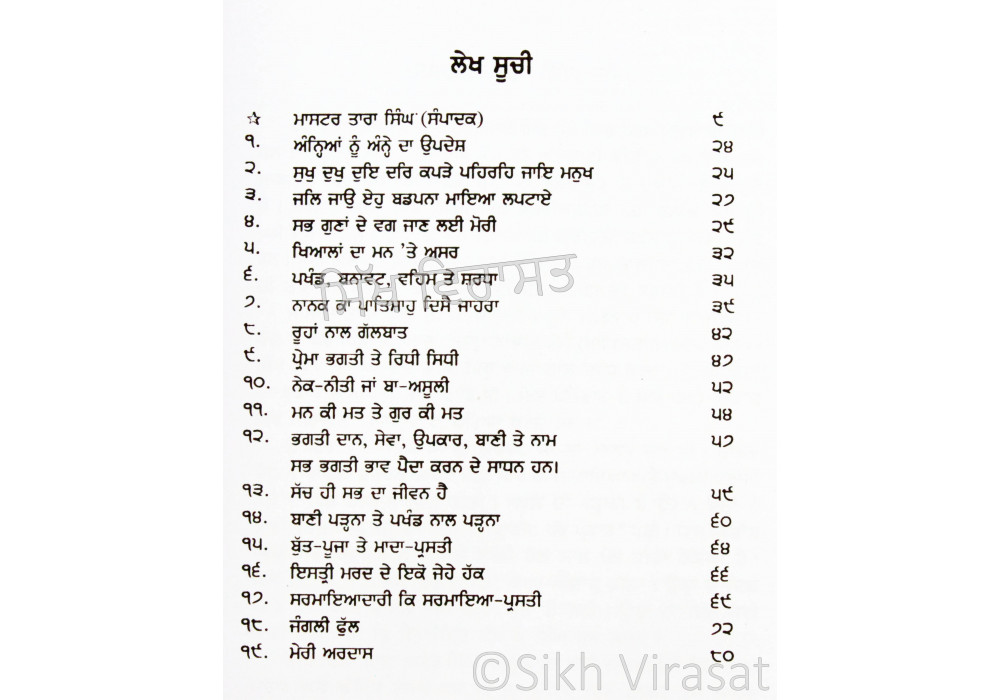 ਲੇਖ ਸੂਚੀ
✰ ਮਾਸਟਰ ਤਾਰਾ ਸਿੰਘ (ਸੰਪਾਦਕ) ੯
੧. ਅੰਨ੍ਹਿਆਂ ਨੂੰ ਅੰਨ੍ਹੇ ਦਾ ਉਪਦੇਸ਼ ੨੪
੨. ਸੁਖੁ ਦੁਖੁ ਦੁਇ ਦਰਿ ਕਪੜੇ ਪਹਿਰਹਿ ਜਾਇ ਮਨੁਖ ੨੫
੩. ਜਲਿ ਜਾਉ ਏਹੁ ਬਡਪਨਾ ਮਾਇਆ ਲਪਟਾਏ ੨੭
੪. ਸਭ ਗੁਣਾਂ ਦੇ ਵਗ ਜਾਣ ਲਈ ਮੋਰੀ ੨੯
੫. ਖਿਆਲਾਂ ਦਾ ਮਨ 'ਤੇ ਅਸਰ ੩੨
੬. ਪਖੰਡ, ਬਨਾਵਟ, ਵਹਿਮ ਤੇ ਸ਼ਰਧਾ ੩੫
੭. ਨਾਨਕ ਕਾ ਪਾਤਿਸਾਹੁ ਦਿਸੈ ਜਾਹਰਾ ੩੯
੮. ਰੂਹਾਂ ਨਾਲ ਗੱਲਬਾਤ ੪੨
੯. ਪ੍ਰੇਮਾ ਭਗਤੀ ਤੇ ਰਿਧੀ ਸਿਧੀ ੪੭
੧੦. ਨੇਕ-ਨੀਤੀ ਜਾਂ ਬਾ-ਅਸੂਲੀ ੫੨
੧੧. ਮਨ ਕੀ ਮਤ ਤੇ ਗੁਰ ਕੀ ਮਤ ੫੪
੧੨. ਭਗਤੀ ਦਾਨ, ਸੇਵਾ, ਉਪਕਾਰ, ਬਾਣੀ ਤੇ ਨਾਮ ੫੭
ਸਭ ਭਗਤੀ ਭਾਵ ਪੈਦਾ ਕਰਨ ਦੇ ਸਾਧਨ ਹਨ।
੧੩. ਸੱਚ ਹੀ ਸਭ ਦਾ ਜੀਵਨ ਹੈ ੫੯
੧੪. ਬਾਣੀ ਪੜ੍ਹਨਾ ਤੇ ਪਖੰਡ ਨਾਲ ਪੜ੍ਹਨਾ ੬੦
੧੫. ਬੁੱਤ-ਪੂਜਾ ਤੇ ਮਾਦਾ-ਪ੍ਰਸਤੀ ੬੪
੧੬. ਇਸਤ੍ਰੀ ਮਰਦ ਦੇ ਇਕੋ ਜੇਹੇ ਹੱਕ ੬੬
੧੭. ਸਰਮਾਇਆਦਾਰੀ ਕਿ ਸਰਮਾਇਆ-ਪ੍ਰਸਤੀ ੬੯
੧੮. ਜੰਗਲੀ ਫੁੱਲ ੭੨
੧੯. ਮੇਰੀ ਅਰਦਾਸ ੮੦
ਸਿੱਖ ਵਿਰਾਸਤ
©Sikh Virasat